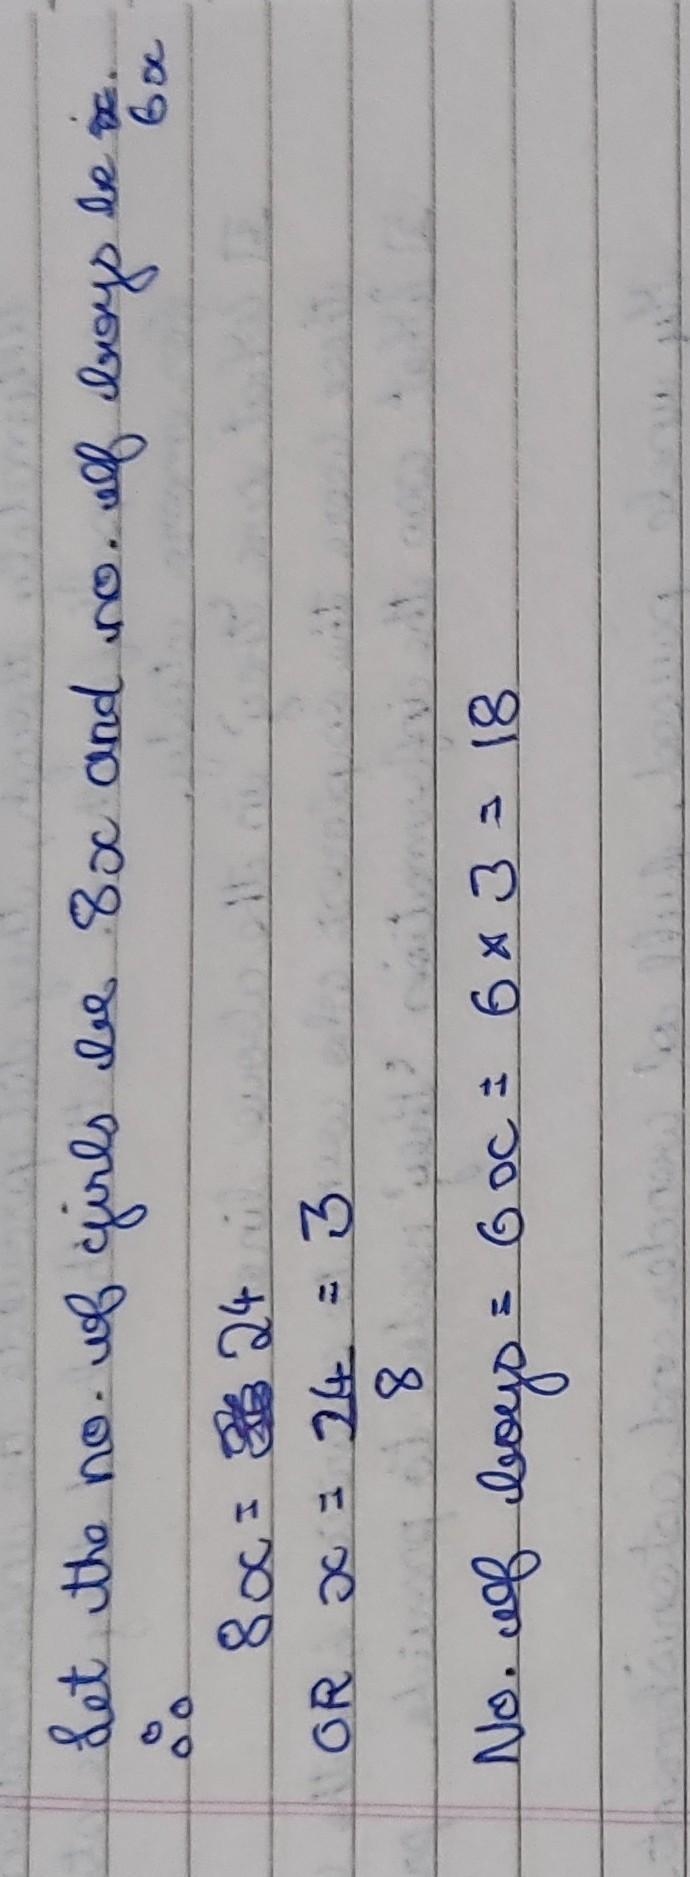 Let the no. of girls be 8x and no. of boys be
6x
∴ 8x = 24
OR x = 24 = 3
8
No. of boys = 6x = 6 × 3 = 18